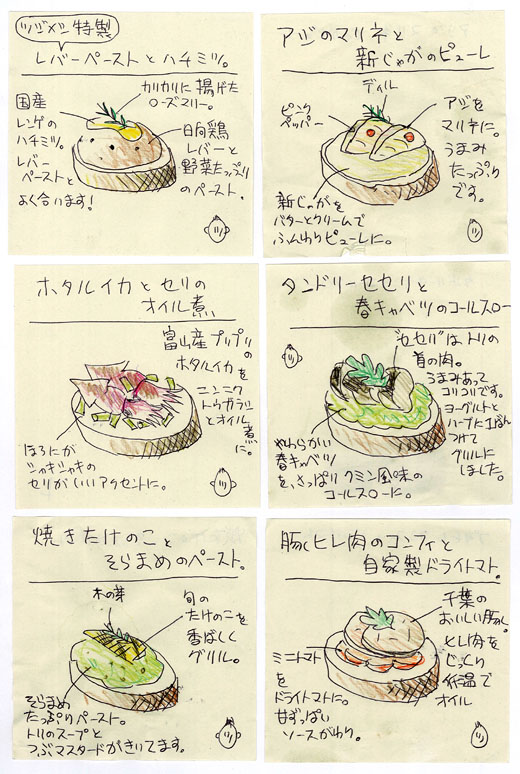 ツジメシ特製
レバーペーストとハチミツ。
カリカリに揚げた
ローズマリー。
国産
レンゲの
ハチミツ。
レバー
ペーストと
よく合います!
日向鶏
レバーと
野菜たっぷり
のペースト。
アジのマリネと
新じゃがのピューレ
ディル
ピンク
ペッパー
アジを
マリネに。
うまみ
たっぷり
です。
新じゃがを
バターとクリームで
ふんわりピューレに。
ホタルイカとセリの
オイル煮
富山産プリプリの
ホタルイカを
ニンニク
トウガラシ
とオイル煮
に。
ほろにが
シャキシャキの
セリがいいアクセントに。
タンドリーセセリと
春キャベツのコールスロー
"セセリ"はトリの
首の肉。
うまみあって
コリコリです。
ヨーグルトと
ハーブに1ばん
つけて
グリルに
しました。
やわらかい
春キャベツ
を、さっぱりクミン風味の
コールスローに。
焼きたけのこと
そらまめのペースト。
木の芽
旬の
たけのこを
香ばしく
グリル。
そらまめ
たっぷりペースト。
トリのスープと
つぶマスタードがきいてます。
豚ヒレ肉のコンフィと
自家製ドライトマト。
千葉の
おいしい豚
ヒレ肉を
じっくり
低温で
オイル
ミニトマト
を
ドライトマトに。
甘ずっぱい
ソースがわり。